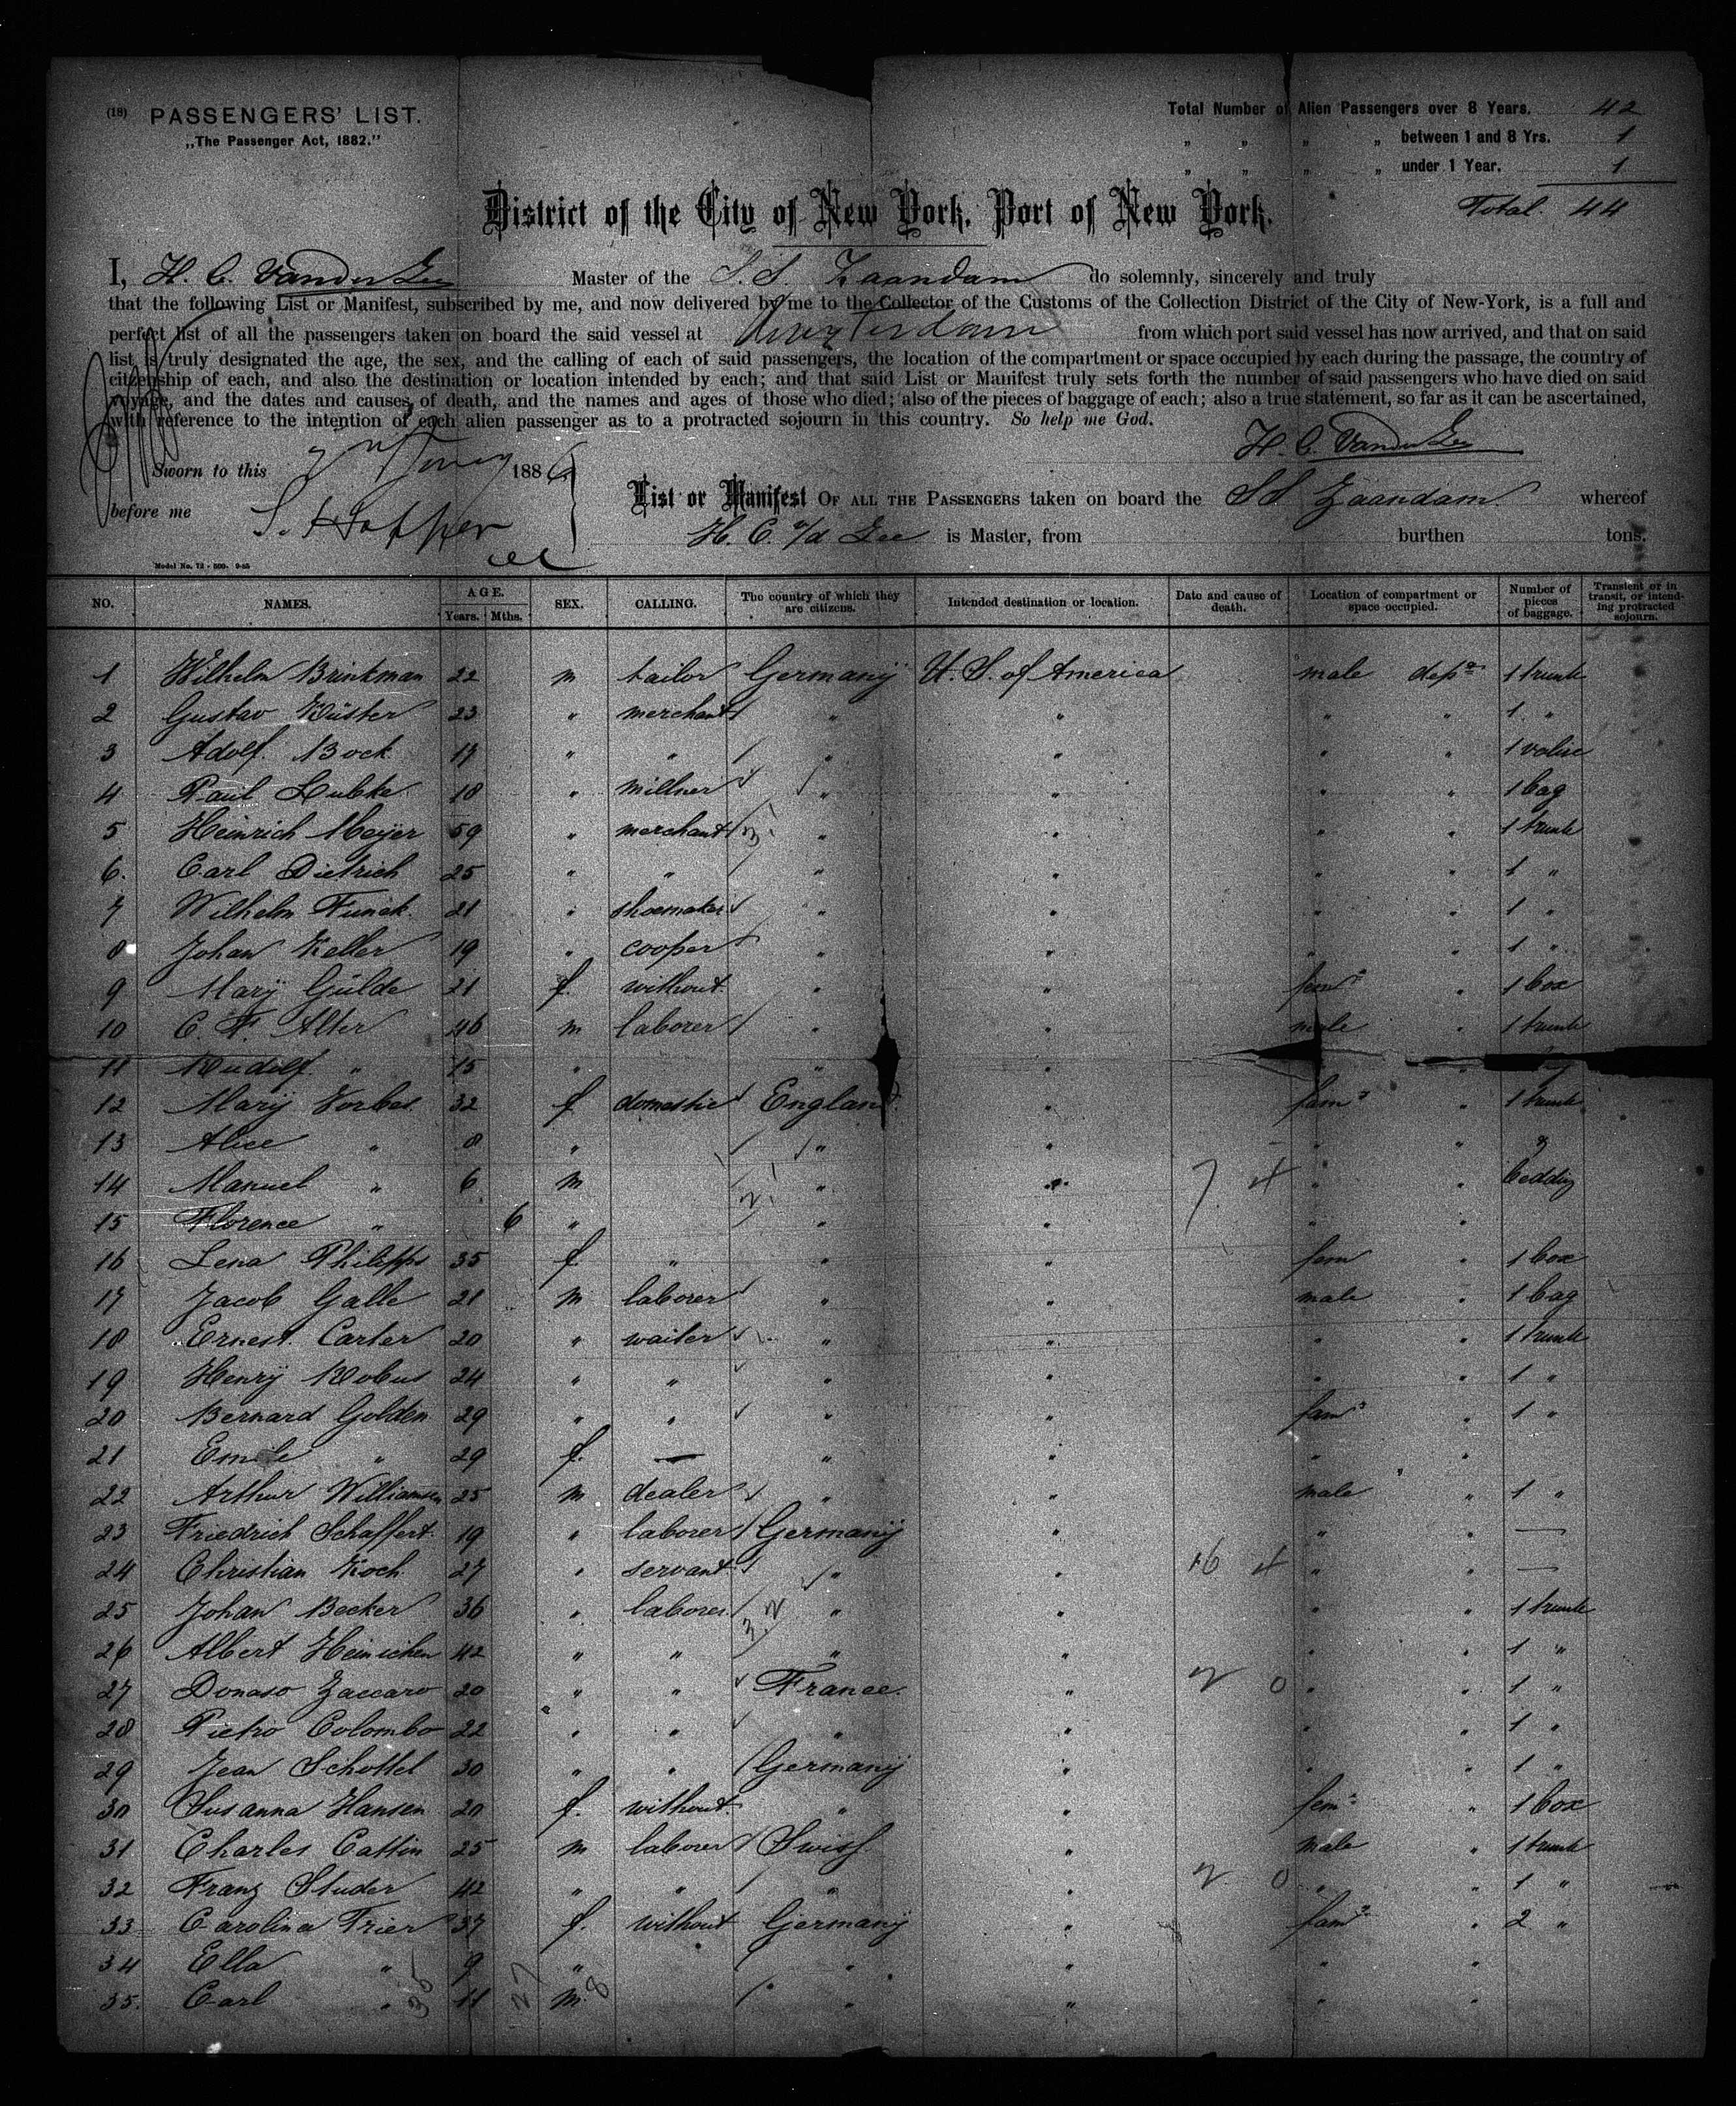 (18) PASSENGERS' LIST.
„The Passenger Act, 1882."
Total Number of Alien Passengers over 8 Years. 42
„ „ „ „ between 1 and 8 Yrs. 1
„ „ „ „ under 1 Year. 1
Total. 44
District of the City of New York, Port of New York.
I, H. C. Vander Zee Master of the S. S. Zaandam do solemnly, sincerely and truly
that the following List or Manifest, subscribed by me, and now delivered by me to the Collector of the Customs of the Collection District of the City of New-York, is a full and
perfect list of all the passengers taken on board the said vessel at Amsterdam from which port said vessel has now arrived, and that on said
list is truly designated the age, the sex, and the calling of each of said passengers, the location of the compartment or space occupied by each during the passage, the country of
citizenship of each, and also the destination or location intended by each; and that said List or Manifest truly sets forth the number of said passengers who have died on said
voyage, and the dates and causes of death, and the names and ages of those who died; also of the pieces of baggage of each; also a true statement, so far as it can be ascertained,
with reference to the intention of each alien passenger as to a protracted sojourn in this country. So help me God.
H. C. Vander Zee
Sworn to this 1886
before me
List or Manifest OF ALL THE PASSENGERS taken on board the SS Zaandam whereof
H. C. v/d Zee is Master, from burthen tons.
Model No. 72 - 500- 9-85
NO. NAMES. AGE. Years. Mths. SEX. CALLING. The country of which they are citizens. Intended destination or location. Date and cause of death. Location of compartment or space occupied. Number of pieces of baggage. Transient or in transit, or intending protracted sojourn.
1 Wilhelm Brinkman 22 m tailor Germany U. S. of America male dept 1 trunk
2 Gustav Küster 23 " merchant " " " " 1 "
3 Adolf Bock 17 " " " " " " 1 valise
4 Paul Lubke 18 " millner " " " " 1 bag
5 Heinrich Meijer 59 " merchant " " " " 1 trunk
6. Carl Dietrich 25 " " " " " " 1 "
7 Wilhelm Funck 21 " shoemaker " " " " 1 "
8 Johan Keller 19 " cooper " " " " 1 "
9 Mary Gülde 21 f. without " " fem " 1 box
10 C. F. Alter 46 m laborer " " male " 1 trunk
11 Rudolf " 15 " " " "
12 Mary Forbes 32 f domestic England " fam " 1 trunk
13 Alice " 8 " " " " " &
14 Manuel " 6 m " " 7 4 " " bedding
15 Florence " 6 " " " " "
16 Lena Philipps 35 f. " " " fem " 1 box
17 Jacob Galle 21 m laborer " " male " 1 bag
18 Ernest Carter 20 " waiter " " " " 1 trunk
19 Henry Robus 24 " " " " " " 1 "
20 Bernard Golden 29 " " " " fam " 1 "
21 " 29 f. — " " " "
22 Arthur Williamsen 25 m dealer " " male " 1 "
23 Friedrich Schaffert 19 " laborer Germany " " " —
24 Christian Koch 27 " servant " " 16 4 " " —
25 Johan Becker 36 " laborer " " " " 1 trunk
26 Albert Heinichen 42 " " " " " " 1 "
27 Donaso Zaccaro 20 " " France. " 2 0 " " 1 "
28 Pietro Colombo 22 " " " " " " 1 "
29 Jean Schottel 30 " " Germany " " " 1 "
30 Susanna Hansen 20 f. without " " fem " 1 box
31 Charles Cattin 25 m laborer Swiss " male " 1 trunk
32 Franz Studer 42 " " " " 2 0 " " 1 "
33 Carolina Trier 37 f. without Germany " fam " 2 "
34 Ella " 9 " " " " "
35. Carl " 11 m. " " " "
35 27 8